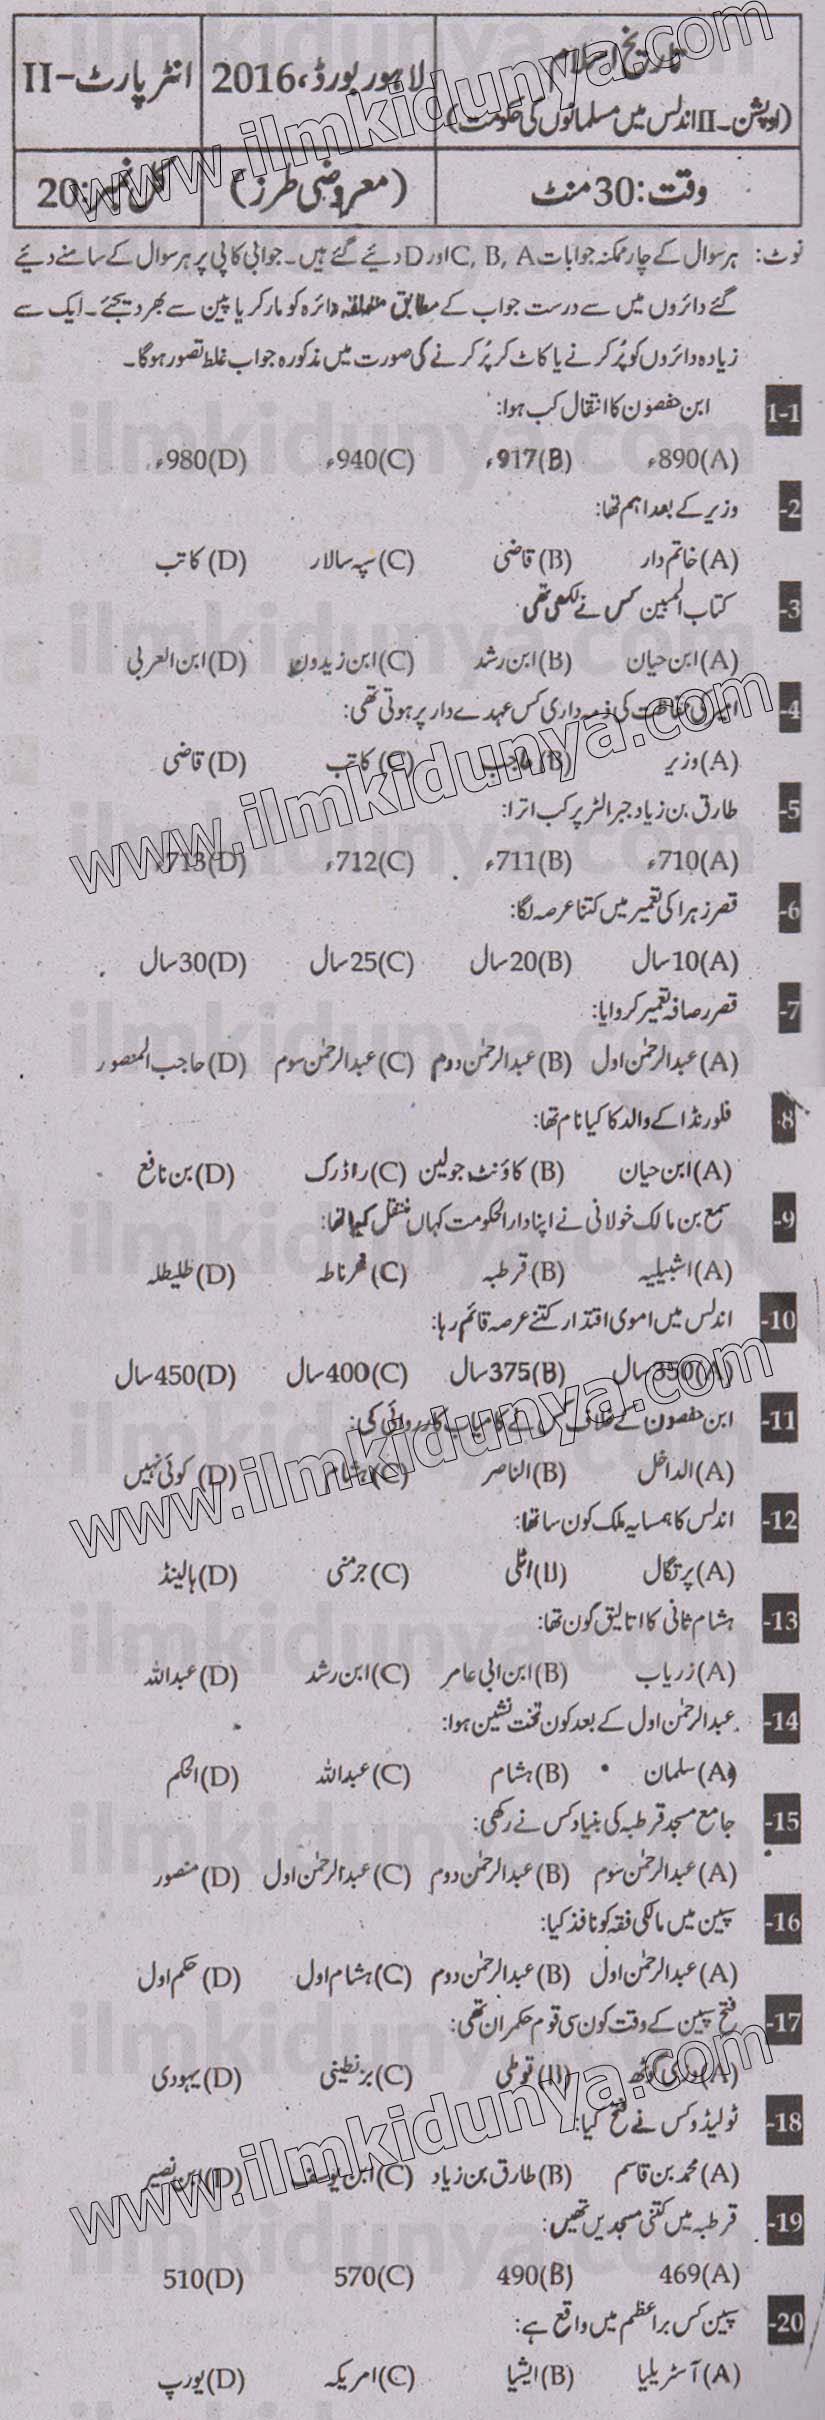 تاریخ اسلام
(اوپشن-II اندلس میں مسلمانوں کی حکومت)
لاہور بورڈ، 2016
انٹر پارٹ-II
وقت: 30 منٹ
(معروضی طرز)
کل نمبر: 20
نوٹ: ہر سوال کے چار ممکنہ جوابات C, B, A اور D دیئے گئے ہیں۔ جوابی کاپی پر ہر سوال کے سامنے دیئے
گئے دائروں میں سے درست جواب کے مطابق متعلقہ دائرہ کو مارکر یا پین سے بھر دیجئے۔ ایک سے
زیادہ دائروں کو پُر کرنے یا کاٹ کر پُر کرنے کی صورت میں مذکورہ جواب غلط تصور ہوگا۔
1-1 ابن حفصون کا انتقال کب ہوا:
(A) 890ء (B) 917ء (C) 940ء (D) 980ء
2- وزیر کے بعد اہم تھا:
(A) خاتم دار (B) قاضی (C) سپہ سالار (D) کاتب
3- کتاب المبین کس نے لکھی تھی
(A) ابن حیان (B) ابن رشد (C) ابن زیدون (D) ابن العربی
4- امیر کی حفاظت کی ذمہ داری کس عہدے دار پر ہوتی تھی:
(A) وزیر (B) حاجب (C) کاتب (D) قاضی
5- طارق بن زیاد جبرالٹر پر کب اترا:
(A) 710ء (B) 711ء (C) 712ء (D) 713ء
6- قصر زہرا کی تعمیر میں کتنا عرصہ لگا:
(A) 10 سال (B) 20 سال (C) 25 سال (D) 30 سال
7- قصر رصافہ تعمیر کروایا:
(A) عبدالرحمٰن اول (B) عبدالرحمٰن دوم (C) عبدالرحمٰن سوم (D) حاجب المنصور
8- فلورنڈا کے والد کا کیا نام تھا:
(A) ابن حیان (B) کاؤنٹ جولین (C) راڈرک (D) بن نافع
9- سمع بن مالک خولانی نے اپنا دارالحکومت کہاں منتقل کیا تھا:
(A) اشبیلیہ (B) قرطبہ (C) غرناطہ (D) طلیطلہ
10- اندلس میں اموی اقتدار کتنے عرصہ قائم رہا:
(A) 350 سال (B) 375 سال (C) 400 سال (D) 450 سال
11- ابن حفصون کے خلاف کس نے کامیاب کارروائی کی:
(A) الداخل (B) الناصر (C) ہشام (D) کوئی نہیں
12- اندلس کا ہمسایہ ملک کون سا تھا:
(A) پرتگال (B) اٹلی (C) جرمنی (D) ہالینڈ
13- ہشام ثانی کا اتالیق کون تھا:
(A) زریاب (B) ابن ابی عامر (C) ابن رشد (D) عبداللہ
14- عبدالرحمٰن اول کے بعد کون تخت نشین ہوا:
(A) سلمان (B) ہشام (C) عبداللہ (D) الحکم
15- جامع مسجد قرطبہ کی بنیاد کس نے رکھی:
(A) عبدالرحمٰن سوم (B) عبدالرحمٰن دوم (C) عبدالرحمٰن اول (D) منصور
16- سپین میں مالکی فقہ کو نافذ کیا:
(A) عبدالرحمٰن اول (B) عبدالرحمٰن دوم (C) ہشام اول (D) حکم اول
17- فتح سپین کے وقت کون سی قوم حکمران تھی:
(A) وزی گوتھ (B) قوطی (C) بزنطینی (D) یہودی
18- ٹولیڈو کس نے فتح کیا:
(A) محمد بن قاسم (B) طارق بن زیاد (C) ابن یوسف (D) ابن نصیر
19- قرطبہ میں کتنی مسجدیں تھیں:
(A) 469 (B) 490 (C) 570 (D) 510
20- سپین کس براعظم میں واقع ہے:
(A) آسٹریلیا (B) ایشیا (C) امریکہ (D) یورپ
www.ilmkidunya.com
www.ilmkidunya.com
www.ilmkidunya.com
www.ilmkidunya.com